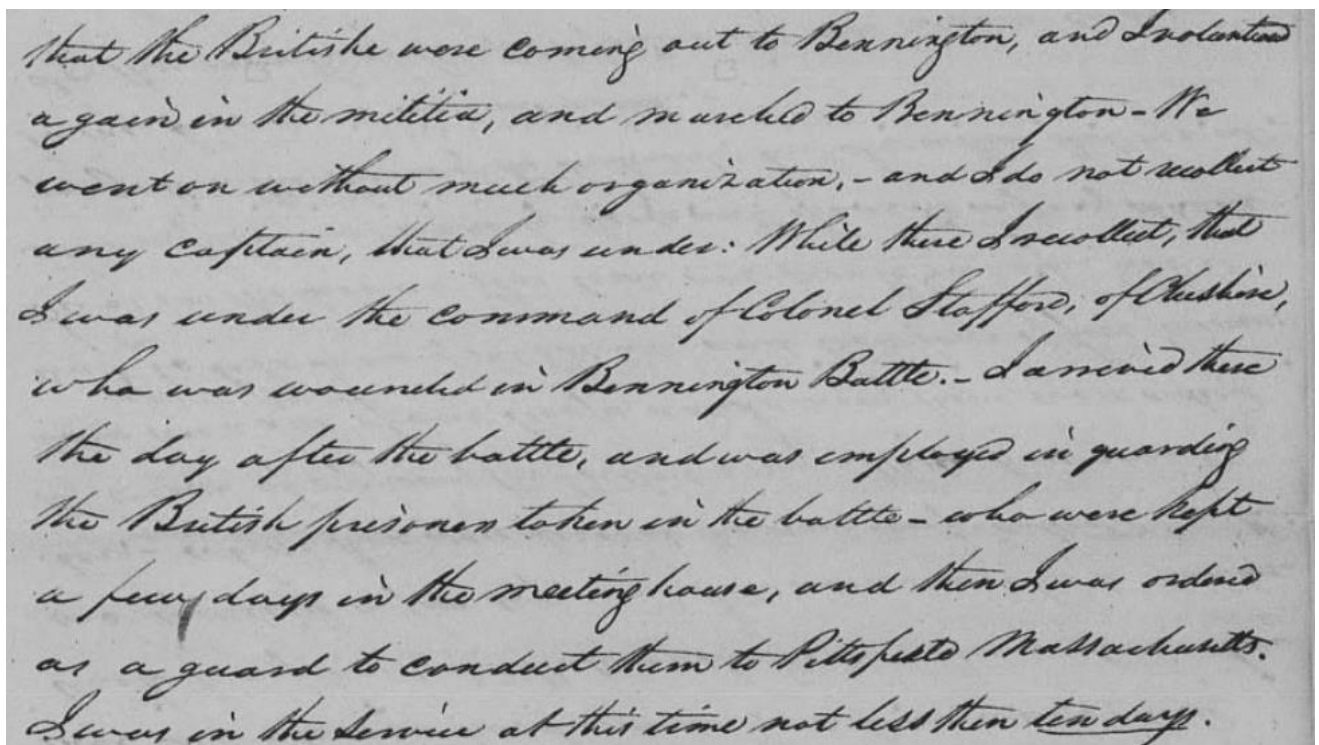 that the Britishe were coming out to Bennington, and I volunteered
again in the militia, and marched to Bennington - We
went on without much organization, - and I do not recollect
any captain, that I was under: While there I recollect, that
I was under the command of Colonel Stafford, of Cheshire,
who was wounded in Bennington Battle. - I arrived there
the day after the battle, and was employed in guarding
the British prisoners taken in the battle - who were kept
a few days in the meeting house, and then I was ordered
as a guard to conduct them to Massachusetts.
I was in the service at this time not less then ten days.